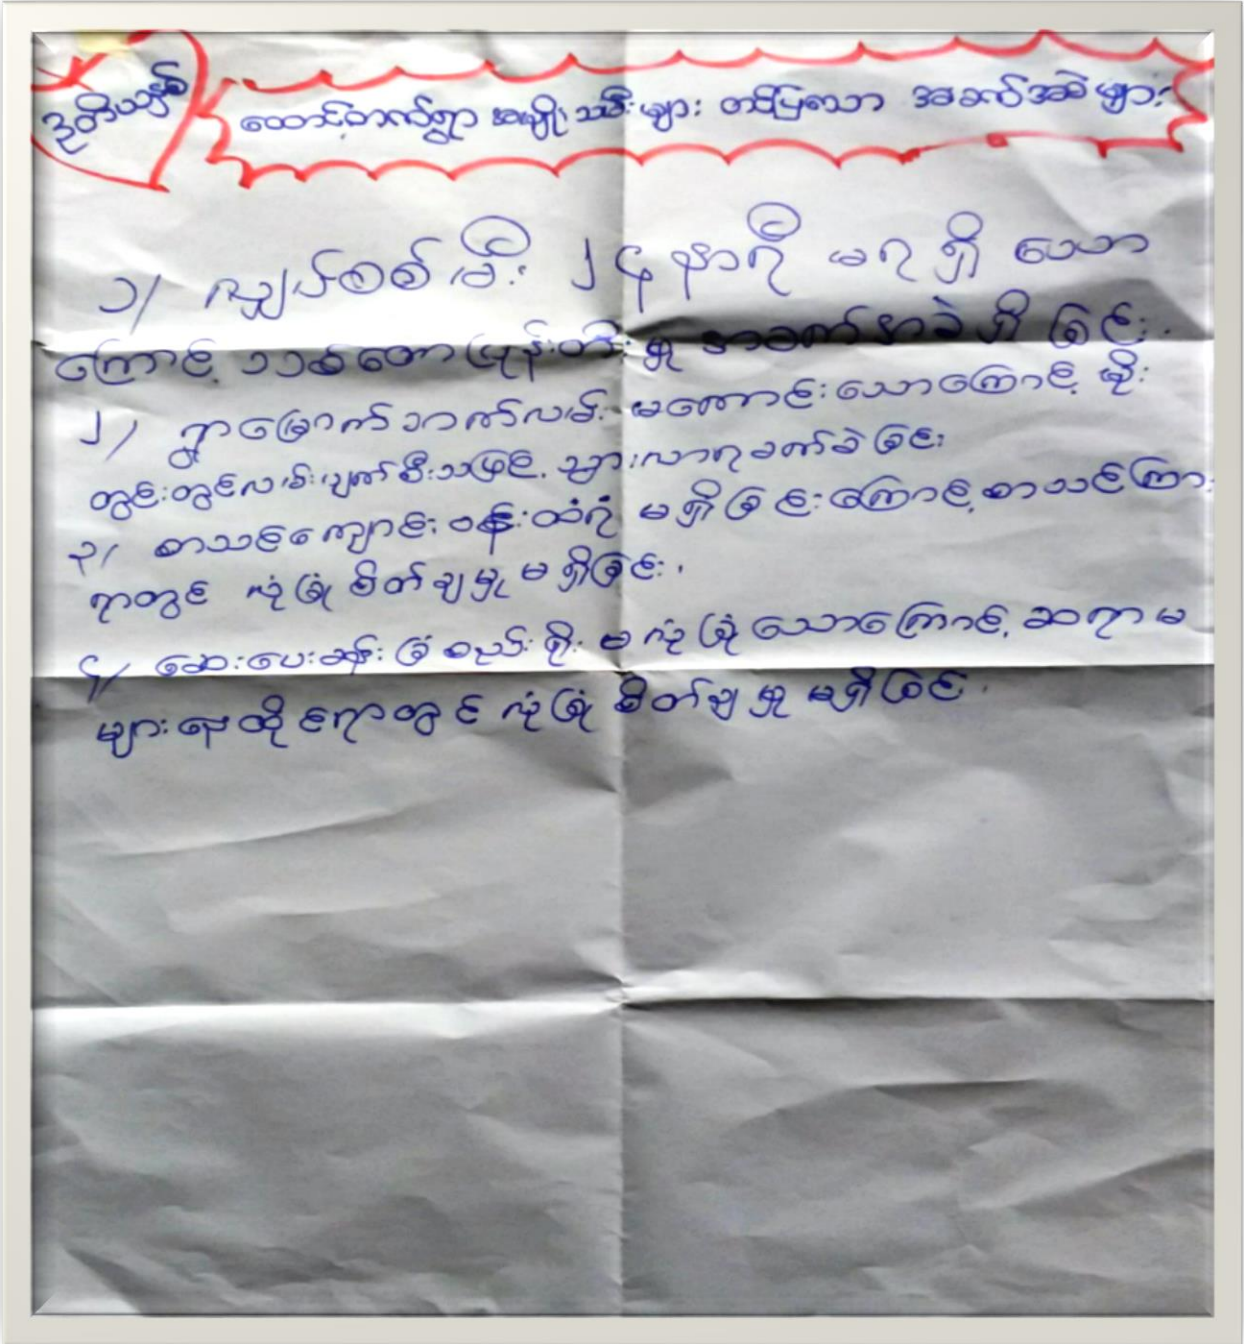 ဒုတိယနှစ်
ထောင့်တက်ရွာ အမျိုးသမီးများ တင်ပြသော အခက်အခဲများ
၁/ လျှပ်စစ်မီး ၂၄ နာရီ မရရှိသော
ကြောင့် သစ်တောပြုန်းတီးမှု အခက်အခဲရှိခြင်း.
၂/ ရွာမြောက်ဘက်လမ်း မကောင်းသောကြောင့် မိုး
တွင်းတွင်လမ်းပျက်စီးသဖြင့် သွားလာရခက်ခဲခြင်း
၃/ စာသင်ကျောင်း ဝန်းထံရံ မရှိခြင်းကြောင့် စာသင်ကြား
ရာတွင် လုံခြုံစိတ်ချမှု မရှိခြင်း.
၄/ ဆေးပေးခန်း ခြံစည်းရိုး မလုံခြုံသောကြောင့် ဆရာမ
များနေထိုင်ရာတွင် လုံခြုံစိတ်ချမှု မရှိခြင်.